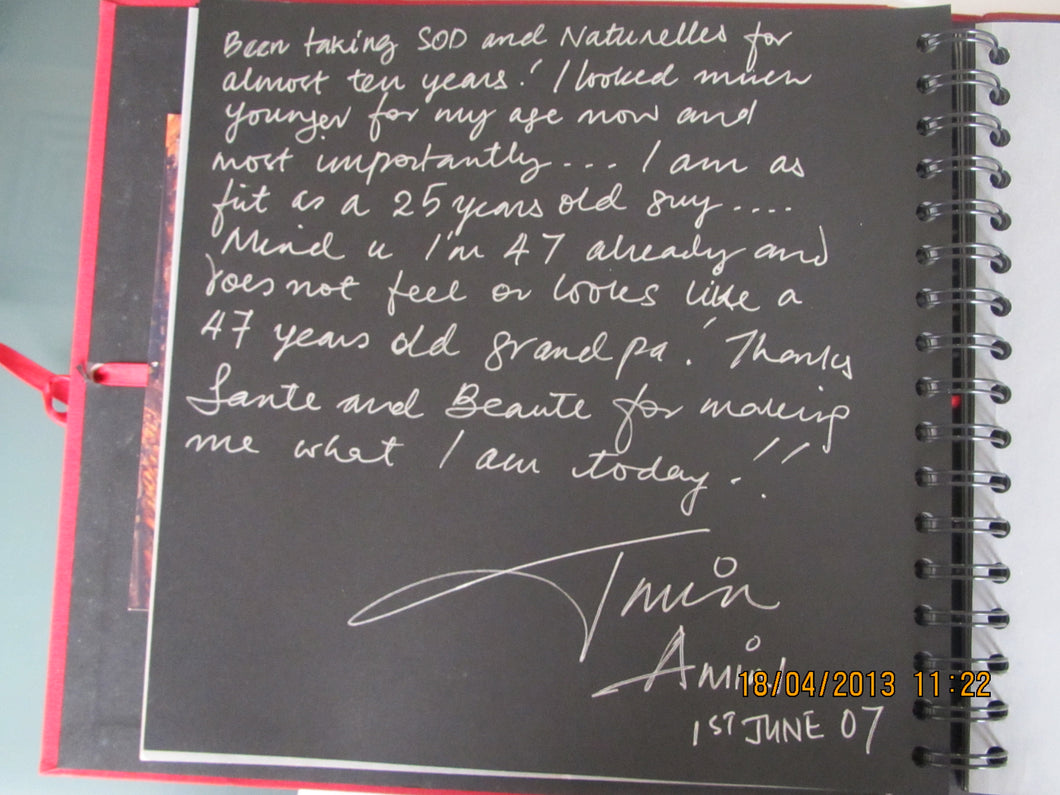 Been taking SOD and Naturelles for
almost ten years! I looked much
younger for my age now and
most importantly... I am as
fit as a 25 years old guy....
Mind u I'm 47 already and
does not feel or looks like a
47 years old grandpa! Thanks
Sante and Beaute for making
me what I am today!!
Amin
Amin
18/04/2013 11:22
1ST JUNE 07